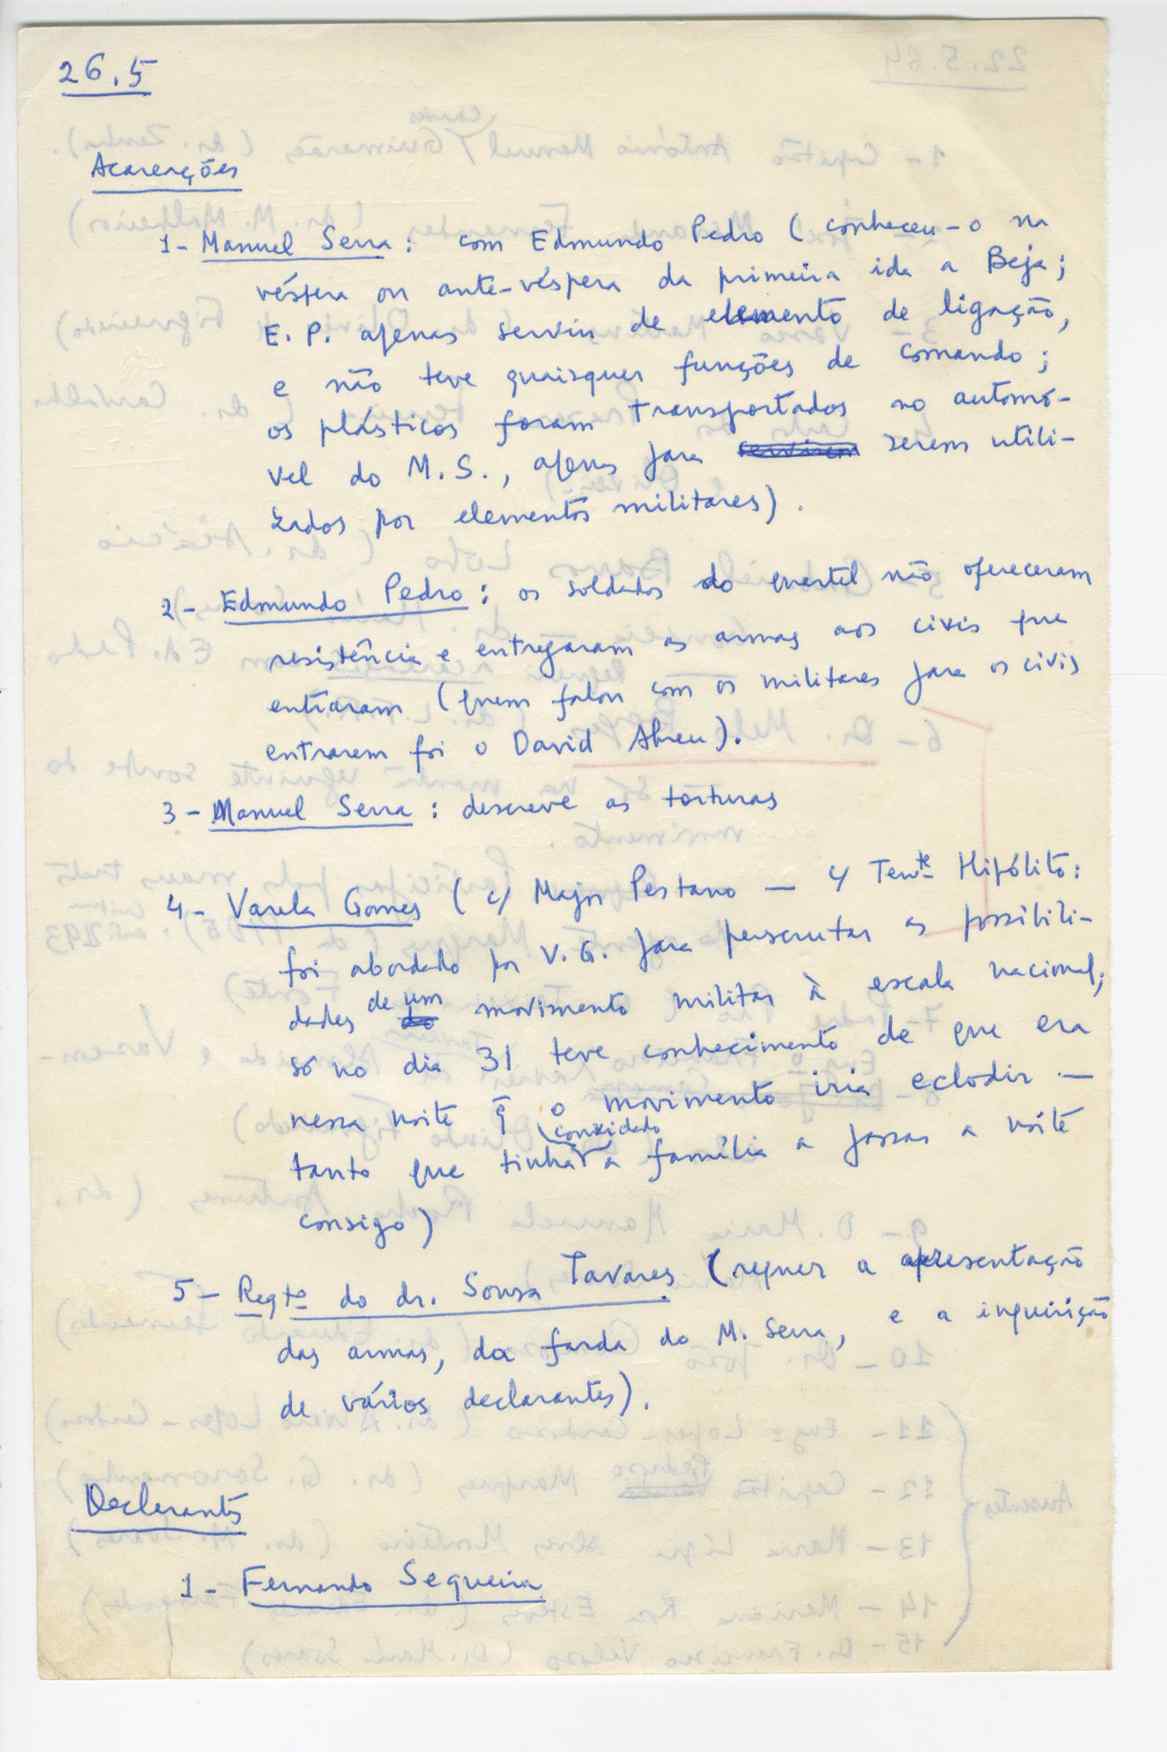 26.5
Acareações
1- Manuel Serra: com Edmundo Pedro (conheceu-o na
véspera ou ante-véspera da primeira ida a Beja;
E. P. apenas serviu de elemento de ligação,
e não teve quaisquer funções de comando;
os plásticos foram transportados no automó-
vel do M. S., apenas para serem utili-
zados por elementos militares).
2- Edmundo Pedro: os soldados do quartel não ofereceram
resistência e entregaram as armas aos civis que
entraram (quem falou com os militares para os civis
entrarem foi o David Abreu).
3- Manuel Serra: descreve as torturas
4- Varela Gomes (c/ Major Pestana — c/ Tente Hipólito:
foi abordado por V. G. para perscrutar as possibili-
dades de um movimento militar à escala nacional;
só no dia 31 teve conhecimento de que era
nessa noite q̄ o movimento iria eclodir —
tanto que tinha convidado a família a passar a noite
consigo)
5- Reqto do dr. Sousa Tavares (requer a apresentação
das armas, da farda do M. Serra, e a inquirição
de vários declarantes).
Declarantes
1- Fernando Sequeira